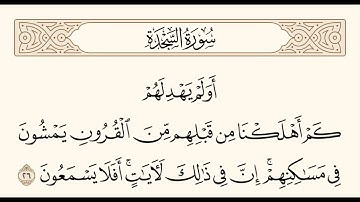 سُورَةُ السَّجْدَةِ
أَوَلَمْ يَهْدِ لَهُمْ
كَمْ أَهْلَكْنَا مِن قَبْلِهِم مِّنَ ٱلْقُرُونِ يَمْشُونَ
فِى مَسَٰكِنِهِمْ ۚ إِنَّ فِى ذَٰلِكَ لَءَايَٰتٍ ۚ أَفَلَا يَسْمَعُونَ ٢٦